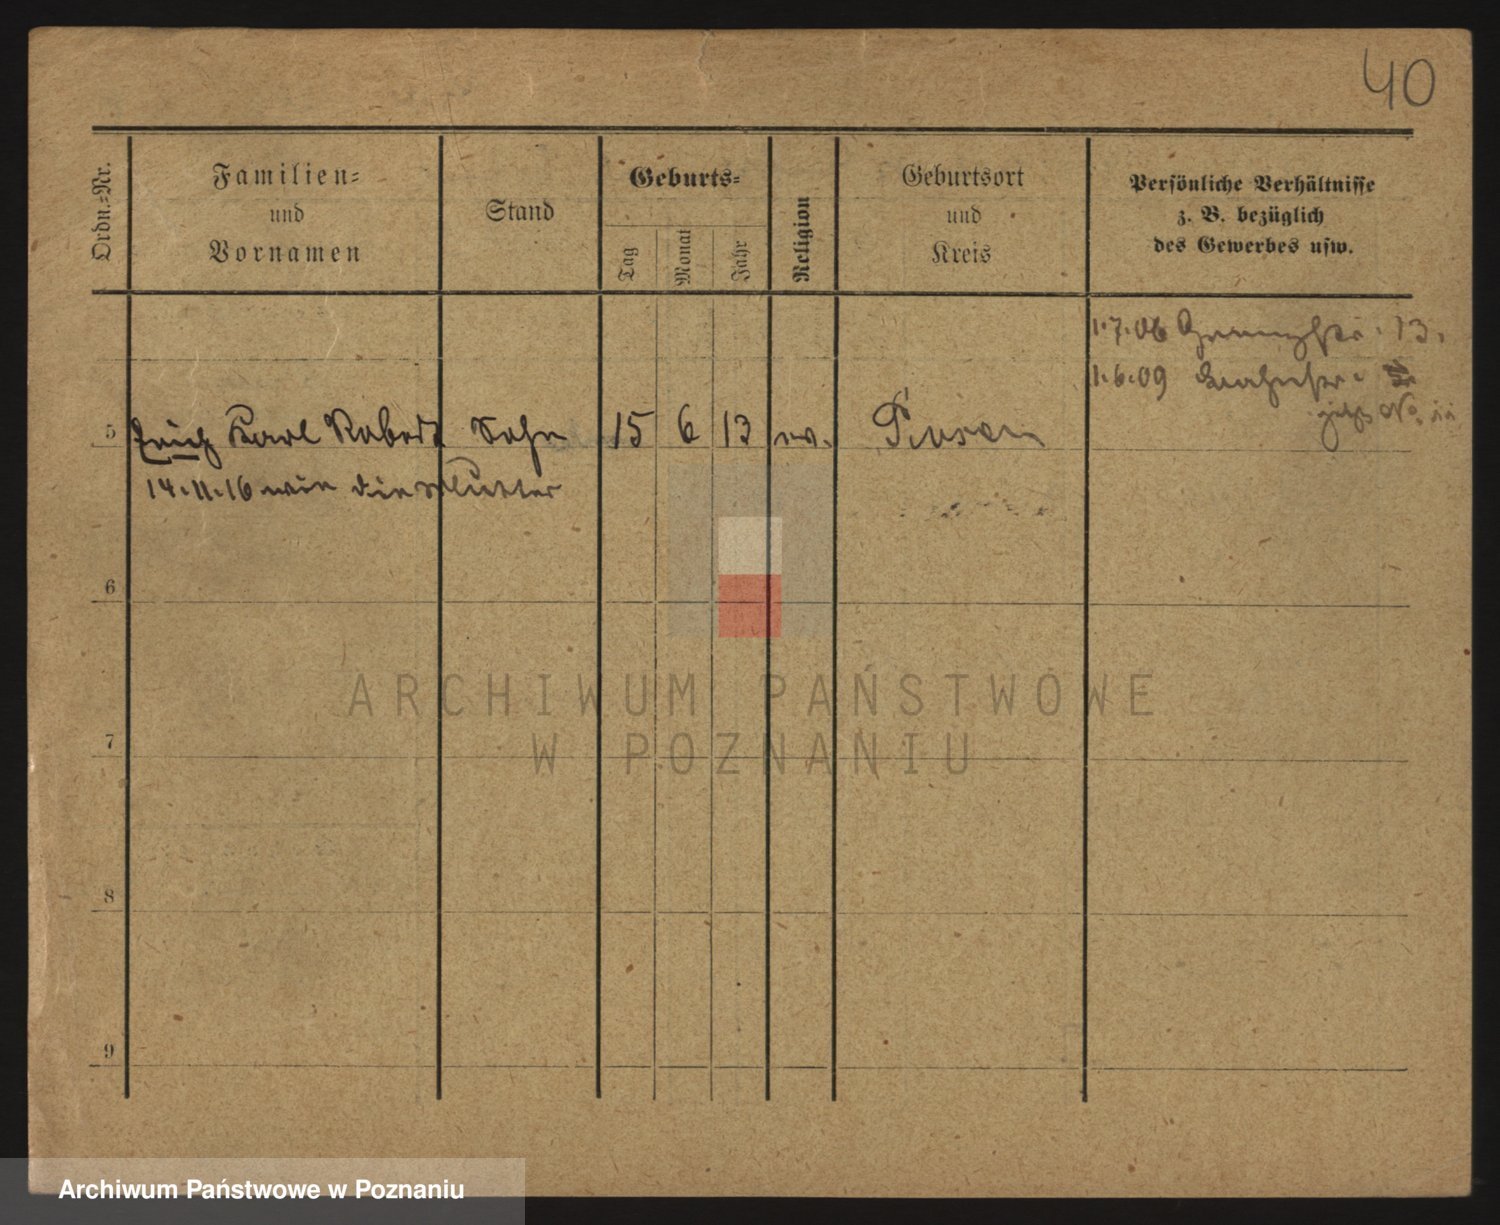 40
Ordn.=Nr.
Familien=
und
Vornamen
Stand
Geburts=
Tag
Monat
Jahr
Religion
Geburtsort
und
Kreis
Persönliche Verhältnisse
z. B. bezüglich
des Gewerbes usw.
1.7.06 13.
1.6.09
jetzt No.
5 Erich Karl Robert Sohn 15 6 13 ev. Posen
14.11.16 wie die Mutter
6
7
8
9
ARCHIWUM PAŃSTWOWE
W POZNANIU
Archiwum Państwowe w Poznaniu